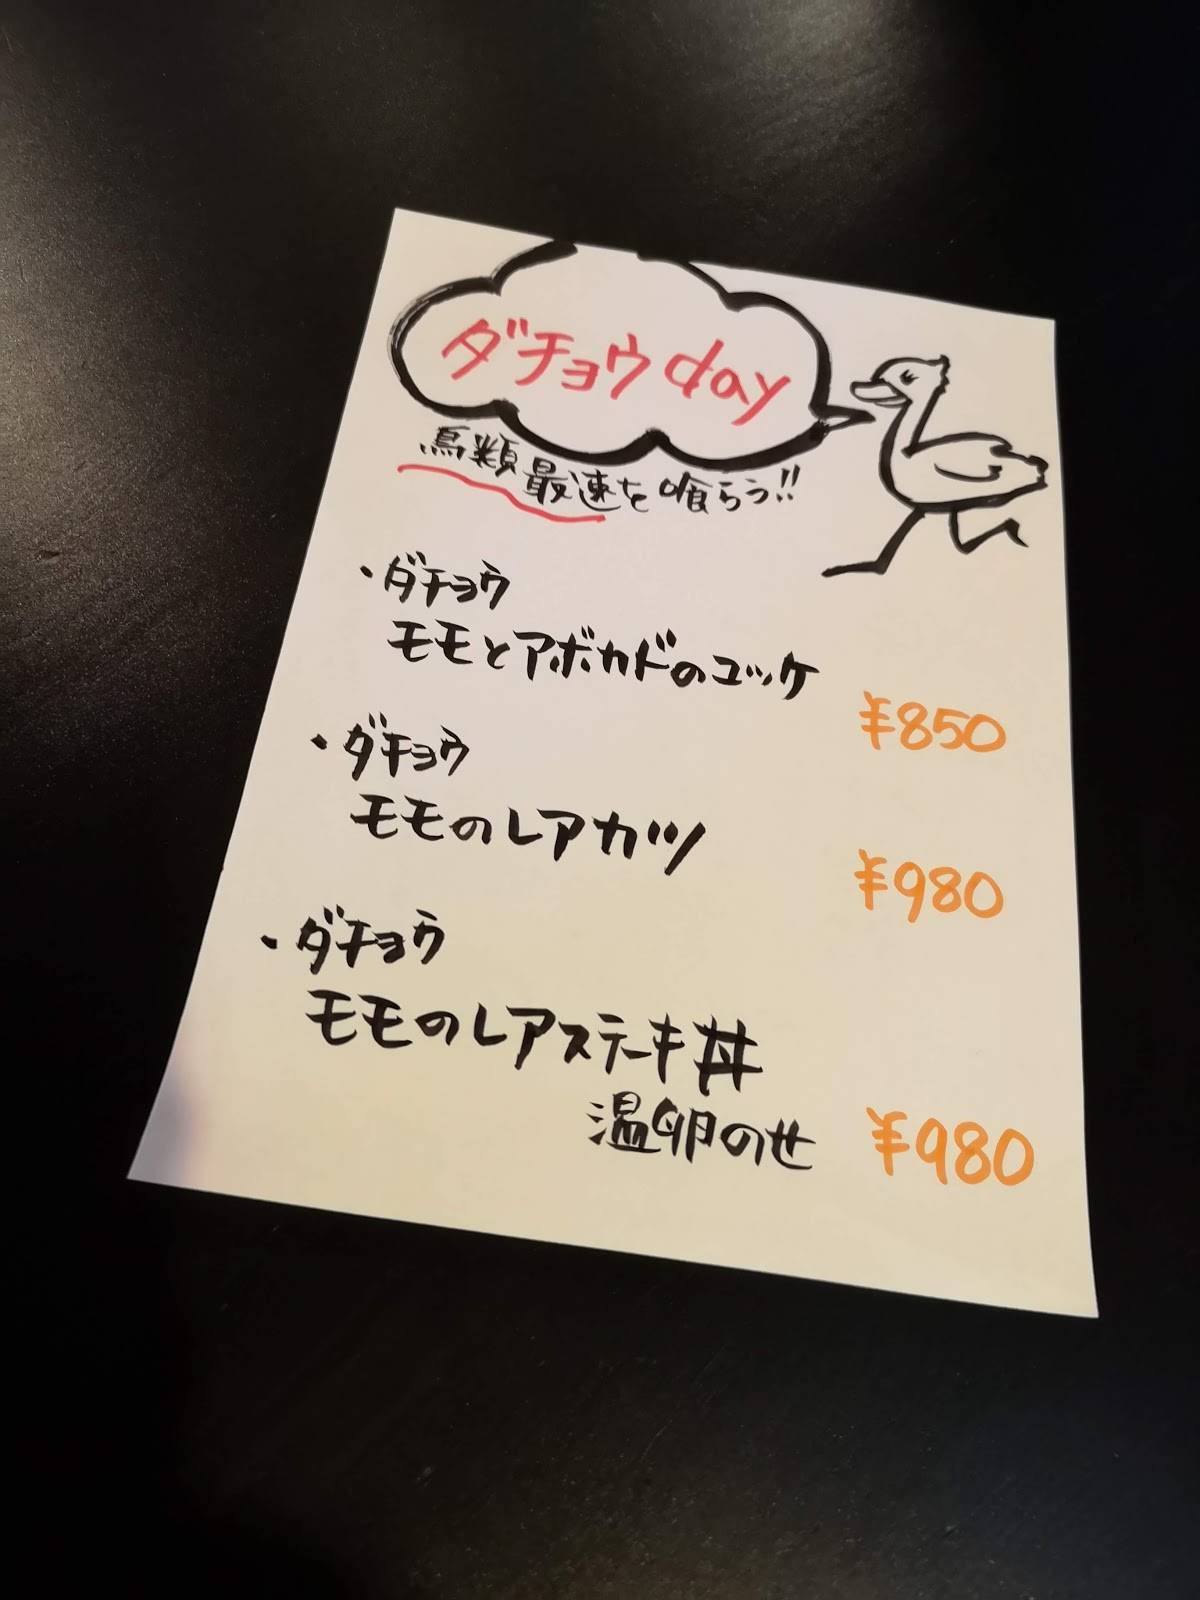 ダチョウday
鳥類最速を喰らう!!
・ダチョウ
モモとアボカドのユッケ
¥850
・ダチョウ
モモのレアカツ
¥980
・ダチョウ
モモのレアステーキ丼
温卵のせ ¥980